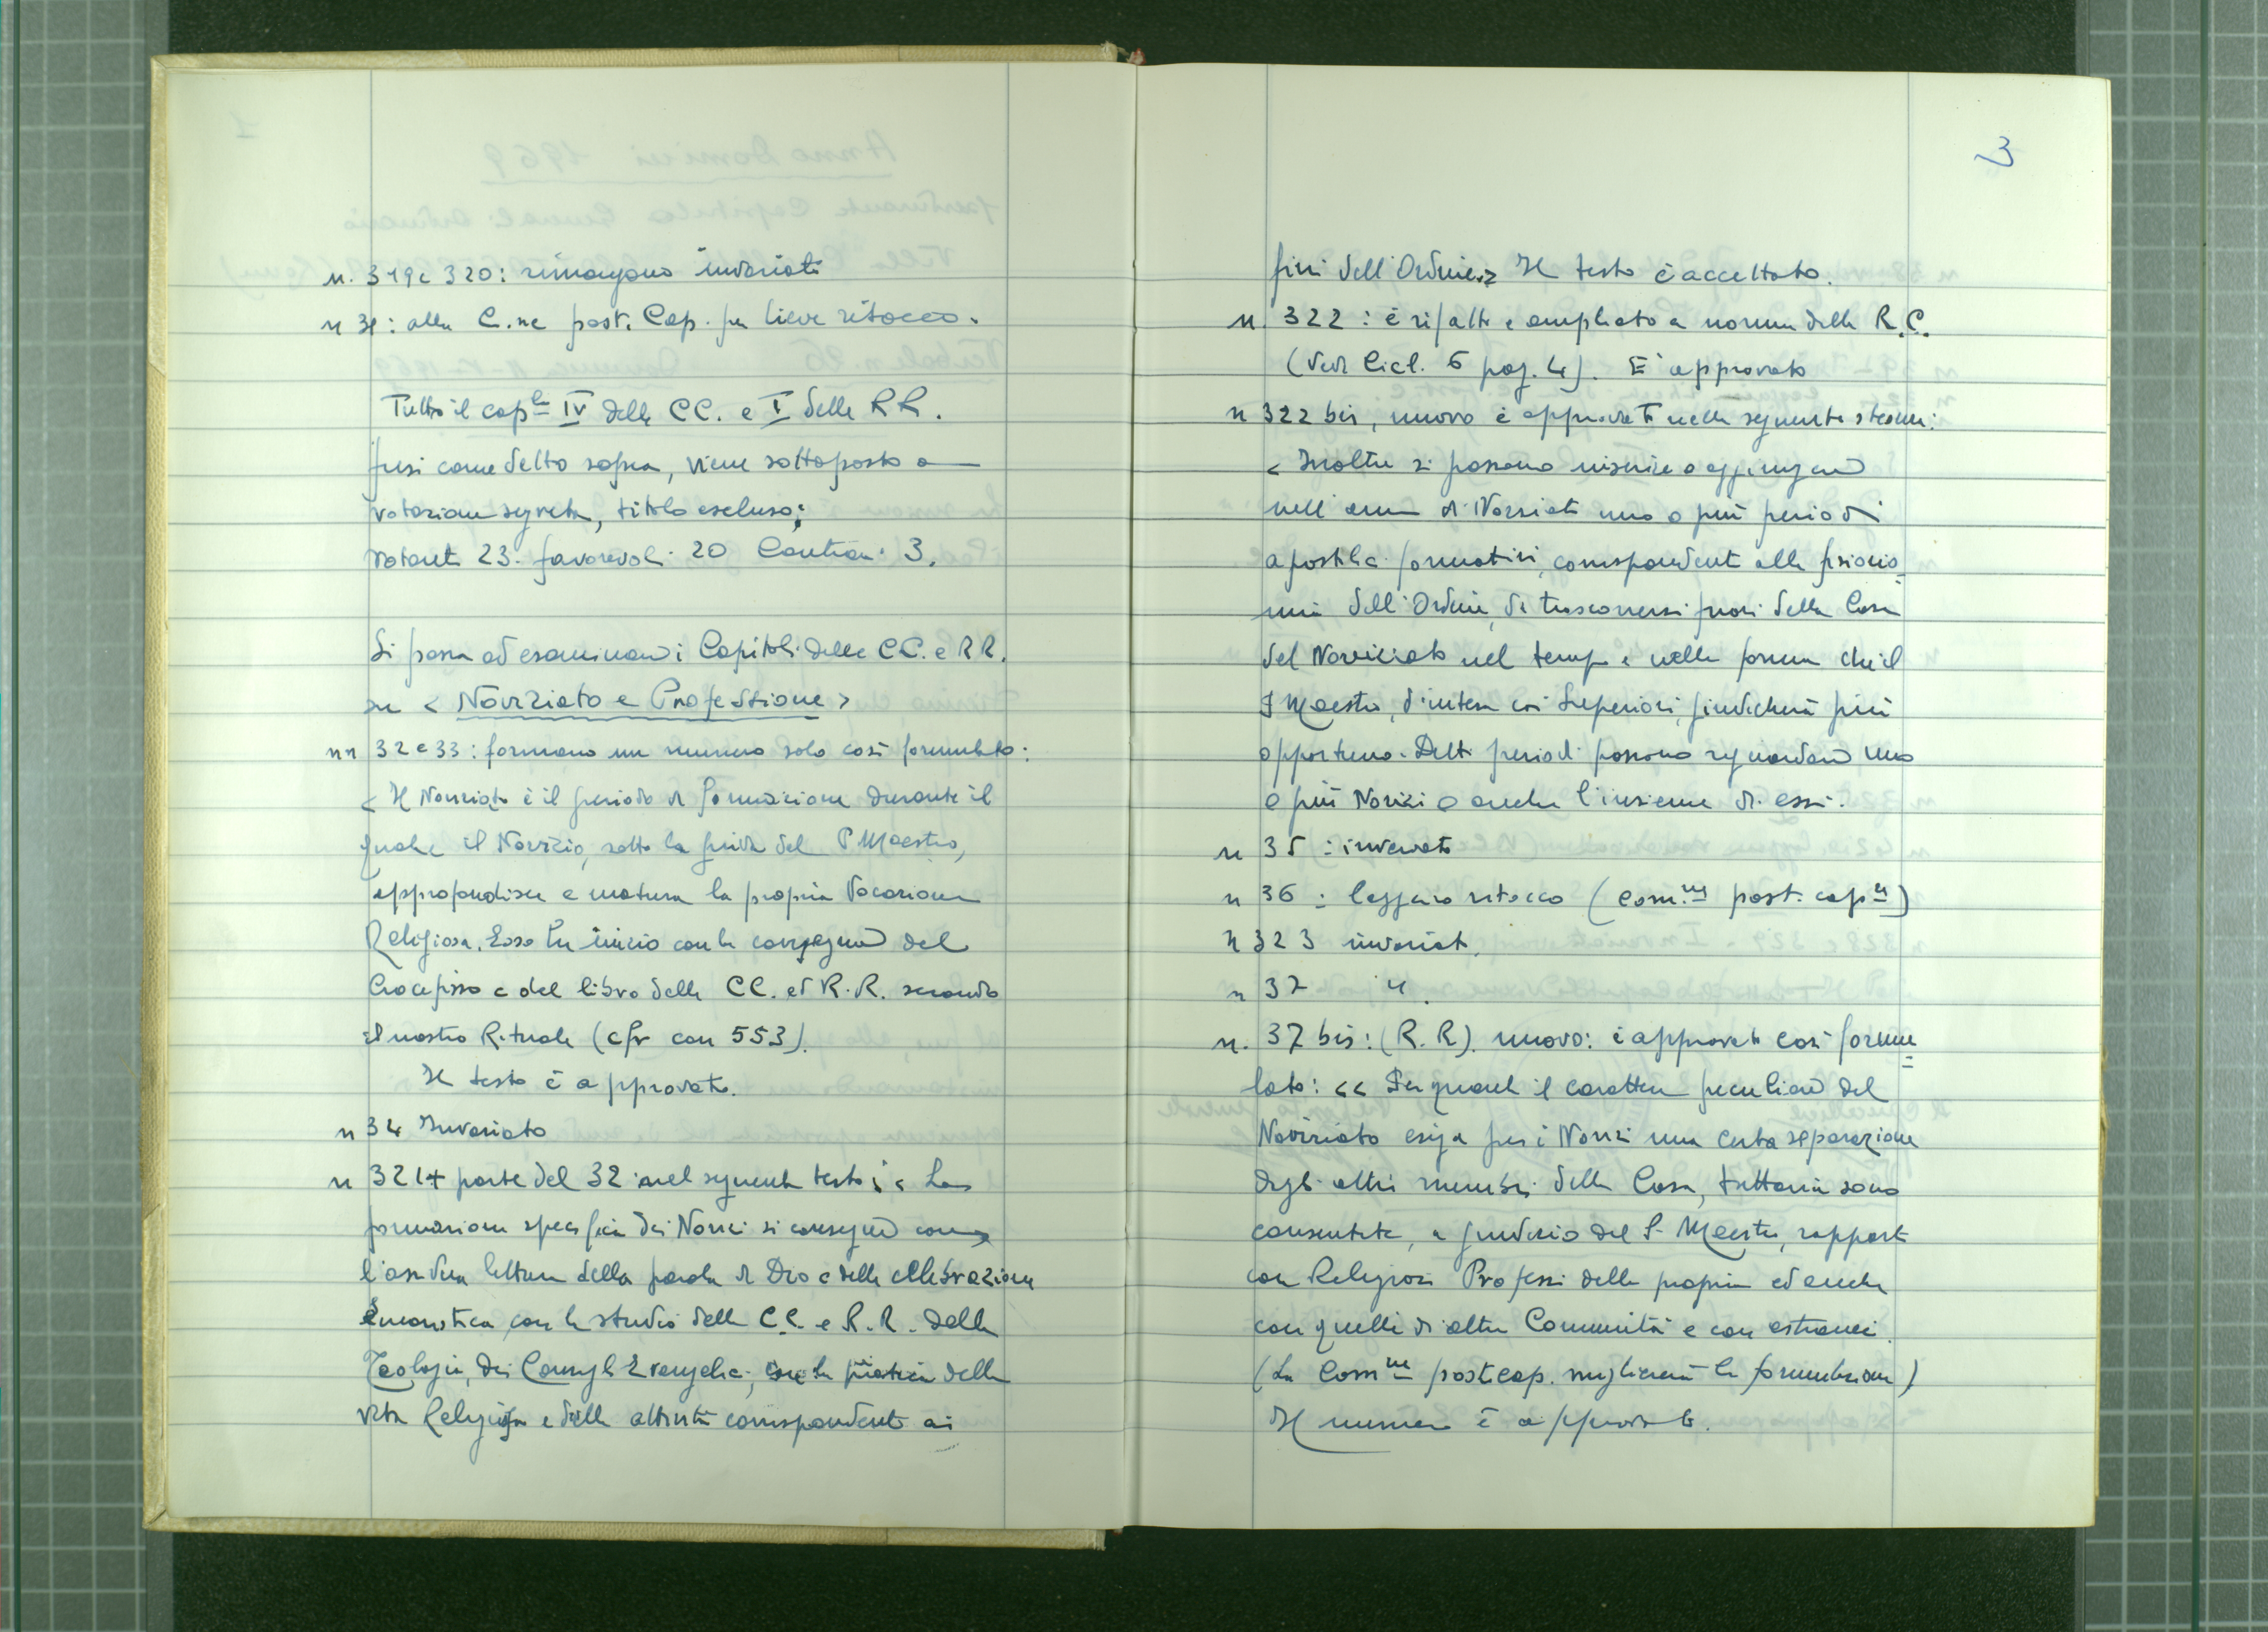 n. 319 e 320: rimangono invariati
n 31: alla C.ne post. Cap. per lieve ritocco.
Tutto il cap.lo IV delle CC. e I delle RR.
fusi come detto sopra, viene sottoposto a
votazione segreta, titolo escluso:
votanti 23. favorevoli 20 Contrari 3.
Si passa ad esaminare i Capitoli delle CC. e RR.
su < Noviziato e Professione >
nn 32 e 33: formano un numero solo così formulato:
< Il Noviziato è il periodo di formazione durante il
quale il Novizio, sotto la guida del P Maestro,
approfondisce e matura la propria Vocazione
Religiosa. Esso ha inizio con la consegna del
Crocefisso e del libro delle CC. ed R.R. secondo
il nostro Rituale (cfr can 553).
Il testo è approvato.
n 34 Invariato
n 321 + parte del 32 nel seguente testo: < La
formazione specifica dei Novizi si consegue con
l'assidua lettura della parola di Dio e della celebrazione
Eucaristica, con lo studio delle C.C. e R.R. della
Teologia, dei Consigli Evangelici, con la pratica della
vita Religiosa e delle attività corrispondenti ai
3
fini dell'Ordine.> Il testo è accettato.
n. 322: è rifatto e ampliato a norma della R.C.
(Vedi Cicl. 6 pag. 4). E' approvato
n 322 bis, nuovo è approvato nella seguente stesura:
< Inoltre si possono inserire o aggiungere
nell'anno di Noviziato uno o più periodi
apostolici formativi, corrispondenti alla fisiono-
mia dell'Ordine, da trascorrersi fuori della Casa
del Noviziato nel tempo e nella forma che il
P Maestro, d'intesa coi Superiori, giudicherà più
opportuno. Detti periodi possono riguardare uno
o più Novizi o anche l'insieme di essi.
n 35: invariato
n 36: leggero ritocco (Com.ne post. cap.le)
n 323 invariato.
n 37 "
n. 37 bis: (R.R). nuovo: è approvato così formu-
lato: << Per quanto il carattere peculiare del
Noviziato esiga per i Novizi una certa separazione
dagli altri membri della Casa, tuttavia sono
consentite, a giudizio del P. Maestro, rapporti
con Religiosi Professi della propria ed anche
con quelli di altre Comunità e con estranei.
(La Com.ne post.cap. migliorerà la formulazione)
Il numero è approvato.